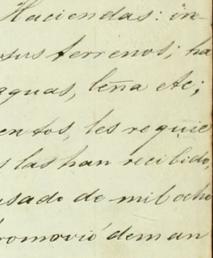 Haciendas: in-
sus terrenos; ha
aguas, leña etc;
entos, les requie
s las han recibido,
sado de mil ocho
romovió deman